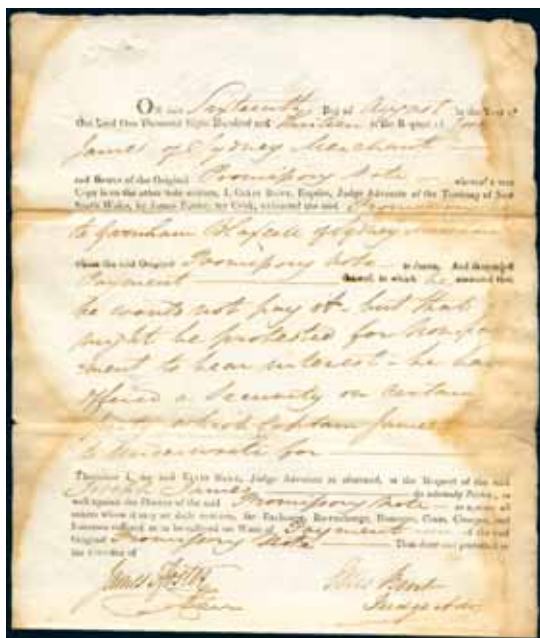 ON this Sixteenth Day of August in the Year of
Our Lord One Thousand Eight Hundred and at the Request of
James of Sydney Merchant
and Bearer of the Original Promissory Note whereof a true
Copy is on the other side written, I, ELLIS BENT, Esquire, Judge Advocate of the Territory of New
South Wales, by James Foster, my Clerk, exhibited the said
to Garnham Blaxcell of Sydney
whom the said Original Promissory Note is drawn, And demanded
Payment thereof, to which he answered that
he would not pay it - but that
might be protested for nonpay
ment to bear interest - he had
offered a Security on certain
which Captain James

Therefore I, the said ELLIS BENT, Judge Advocate as aforesaid, at the Request of the said
James do solemnly Protest, as
well against the Drawer of the said Promissory Note as against all
others whom it may or doth concern, for Exchange, Re-exchange, Damages, Costs, Charges, and
Interests suffered or to be suffered for Want of Payment of the said
Original Promissory Note Thus done and protested in
the Presence of
James Foster Ellis Bent
Judge Adv